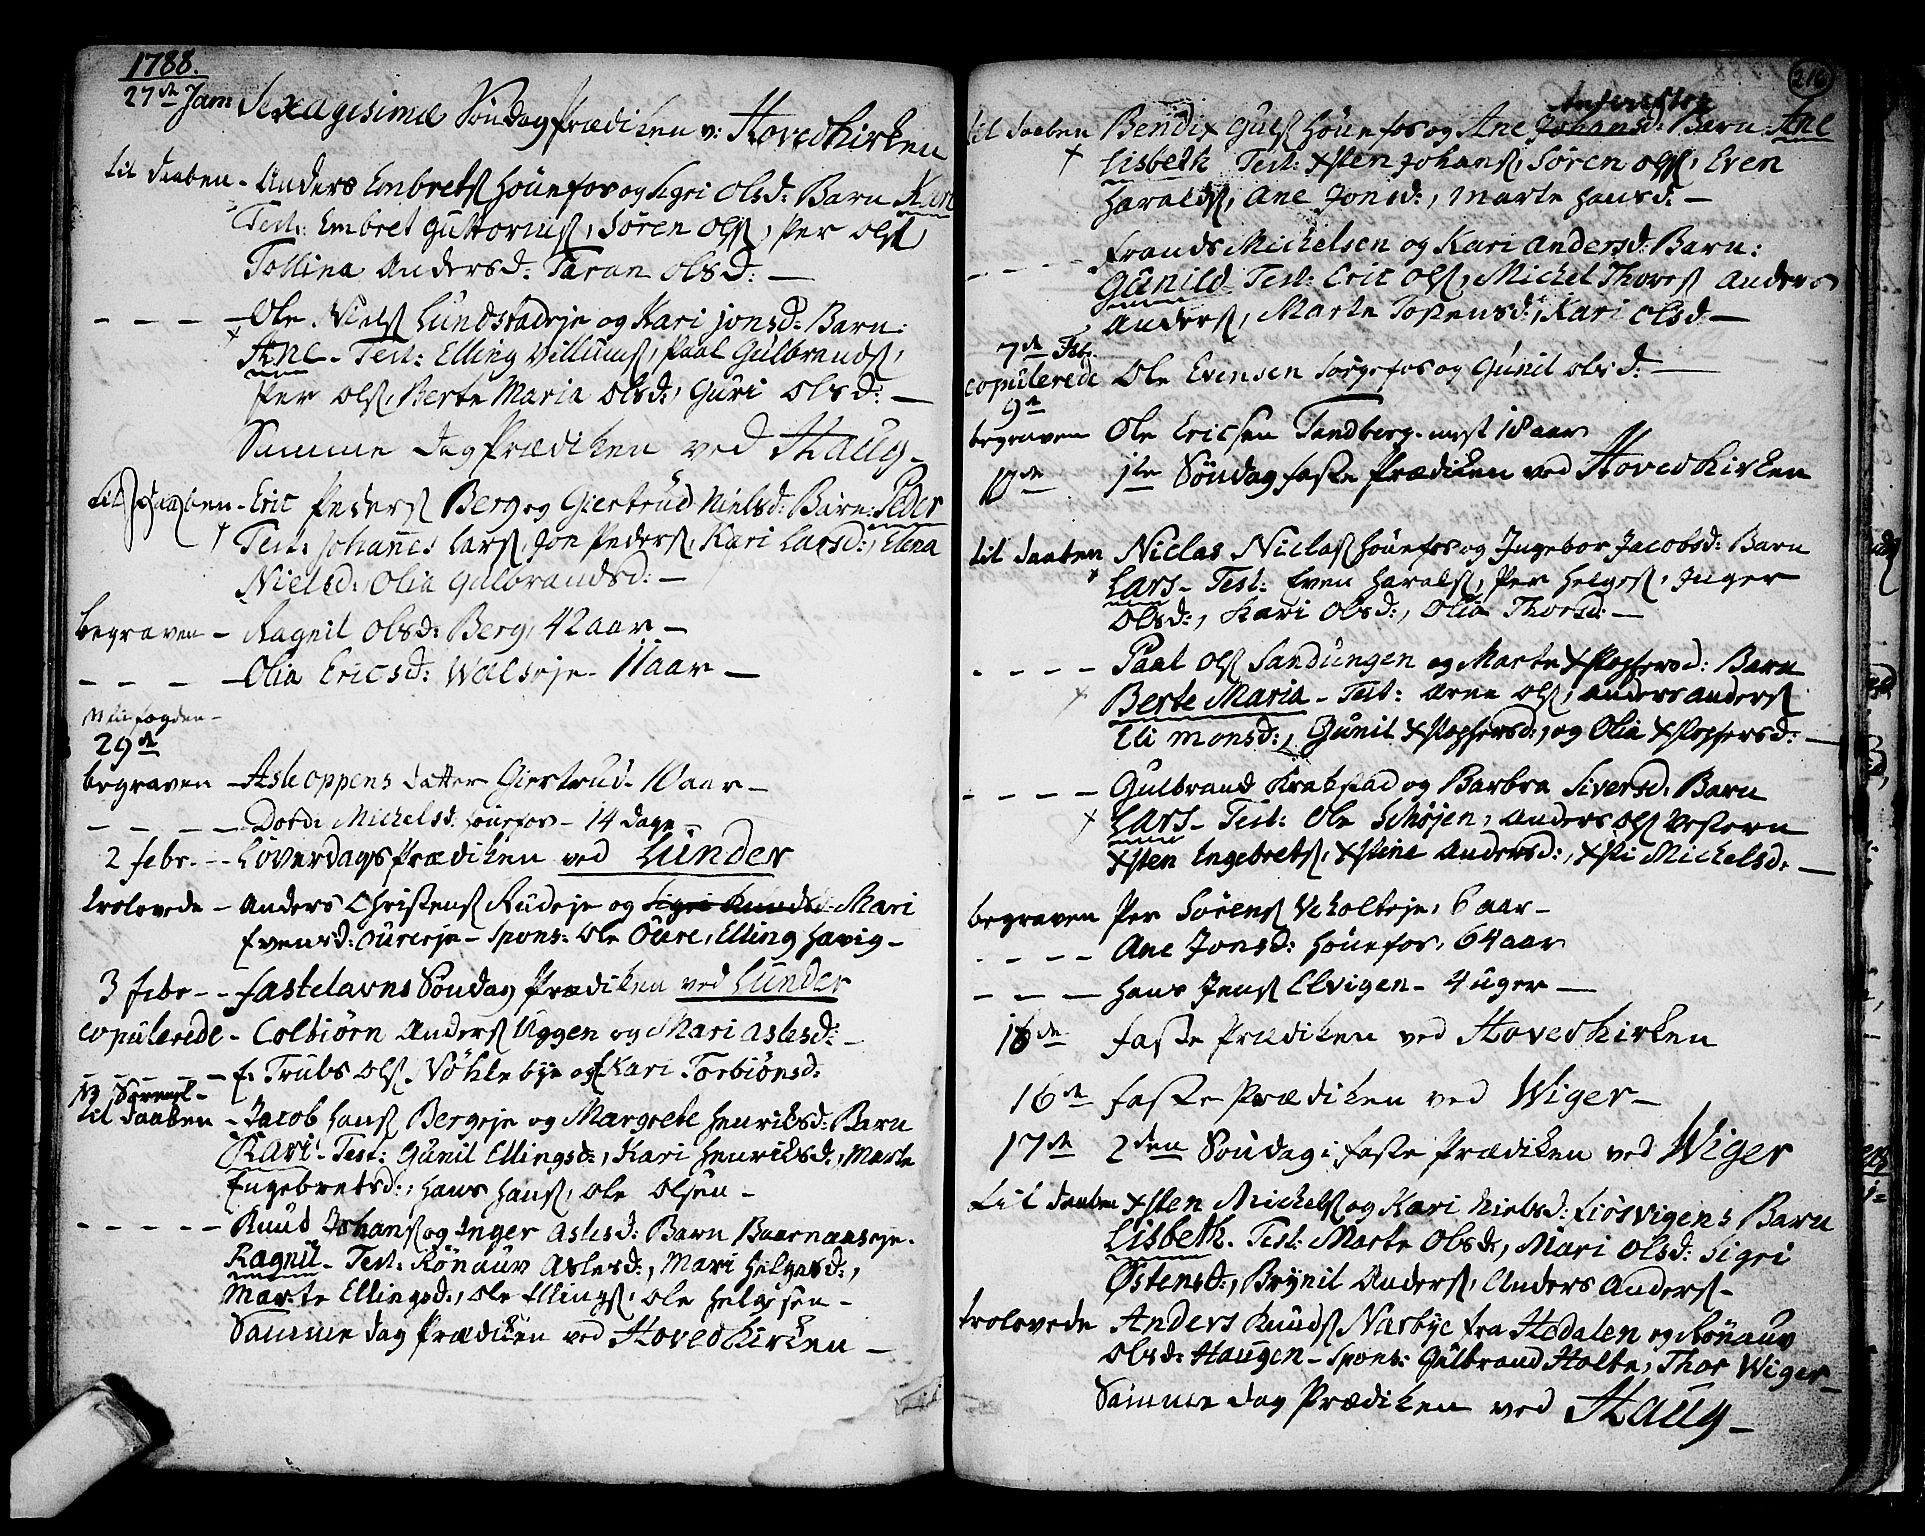 1788.
27de Jan: Sexagesimæ Søndag Prædiken v: Hovedkirken
til daaben - Anders Embretsß hønefos og Sigri Olsd: Barn Kari
Test: Embret Guttormsß, Søren Olsß, Per Olsß
Tollina Andersd: Taran Olsd: —
- - - - Ole Nielsß Lundstadeje og Kari Jonsd: Barn:
Ane - Test: Elling Villumsß, Paal Gulbrandsß,
Per Olsß, Berte Maria Olsd:, Guri Olsd: —
Samme dag Prædiken ved Haug -
til daaben - Eric Pedersß Berg og Giertrud Nielsd: Barn: Peder
Test: Johannes Larsß, Jon Pedersß, Kari Larsd:, Elena
Nielsd: Olia Gulbrandsd: —
begraven - Ragnil Olsd: Berg, 42 aar —
- - - - Olia Ericsd: Wælseje - 11 aar —
29de
begraven - Asle Oppens datter Giertrud - 10 aar —
- - - - Dord: Michelsd: hønefos - 14 dage -
2 febr. - - Løverdags Prædiken ved Lunder
trolovede - Anders Christensß Rudeje og Sigri Knudsd: Mari
Evensd: Oureeje - Spons: Ole Oure, Elling Havig -
3 febr - - fastelavns Søndag Prædiken ved Lunder
copulerede - Colbiørn Andersß Uggen og Mari Aslesd: -
- - - - - f. Trubs Olsß Nøklebye og f Kari Torbiønsd:
til daaben - Jacob Hansß Bergeje og Margrete Henriksd: Barn
Kari - Test: Gunil Ellingsd:, Kari Henriksd:, Marte
Engebretsd:, Hans Hansß, Ole Olsen -
- - - - - Knud Johansß og Inger Aslesd: Barn Baarnaaseje.
Ragnil - Test: Rønauv Aslesd:, Mari Helgesd:,
Marte Ellingsd:, Ole Ellingsß, Ole Helgesen -
Samme dag Prædiken ved Hovedkirken —
216
til daaben Bendix Gulsß hønefos og Ane Johansd: Barn: Ane
Lisbeth Test: Xsten Johansß, Søren Olsß, Even
Haraldsß, Ane Jonsd:, Marte Hansd: —
- - - - Frands Michelsen og Kari Andersd: Barn:
Gunild Test: Eric Olsß, Michel Thorsß Anders
Andersß, Marte Tostensd:, Kari Olsd —
7de Feb.
copulerede Ole Evensen Sørgefos og Gunil Olsd: —
9de
begraven Ole Ericsen Tandberg - næst 18 aar
10de 1ste Søndag faste Prædiken ved Hovedkirken
til daaben Niclas Niclasß hønefos og Ingebor Jacobsd: Barn
Lars - Test: Even Haralsß, Per Helgesß, Inger
Olsd:, Kari Olsd:, Olia Thorsd: —
- - - - Paal Olsß Sandungen og Marte Xstophersd: Barn
Berte Maria - Test: Arne Olsß, Anders Andersß
Eli Monsd:, Gunil Xstophersd:, og Olia Xstophersd: —
- - - - Gulbrand Krakstad og Barbra Siversd: Barn
Lars - Test: Ole Schøjen, Anders Olsß Vestern
Xsten Ingebretsß, Xstine Andersd:, Xsti Michelsd: —
begraven Per Sørensß Vekolteje, 6 aar -
- - - - Ane Jonsd: hønefos, 64 aar
- - - Hans Jensß Elvigen - 4 uger —
faste Prædiken ved Hovedkirken
16de faste Prædiken ved Wiger -
17de 2den Søndag i faste Prædiken ved Wiger
til daaben Xsten Michelsß og Kari Nielsd: Liøsvigens Barn
Lisbeth. Test: Marte Olsd:, Mari Olsd: Sigri
Østensd:, Brynil Andersß, Anders Andersß -
trolovede Anders Knudsß Narbye fra Hedalen og Rønauv
Olsd: Haugen - Spons: Gulbrand Holte, Thor Wiger -
Samme dag Prædiken ved Haug -